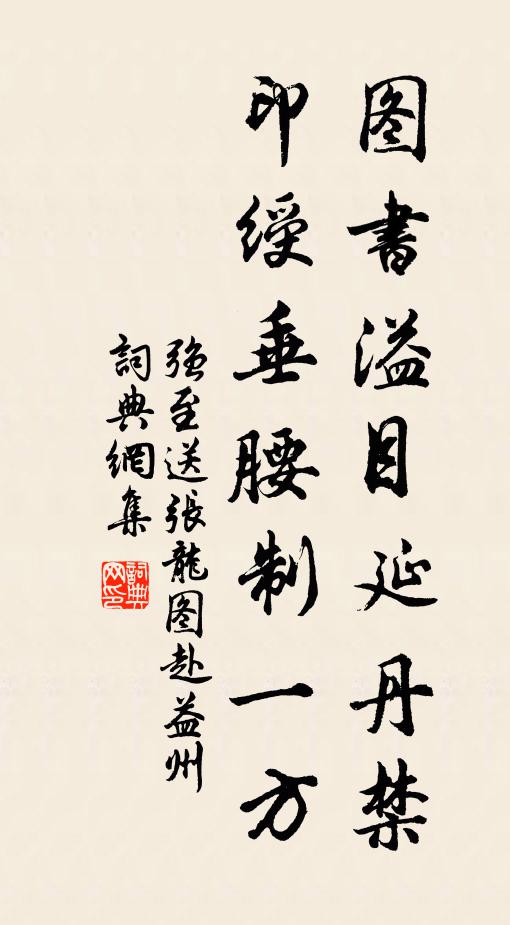 图書溢目延丹禁
印綬垂腰制一方
强至送張龍图赴益州
詞典網集
詞典网印